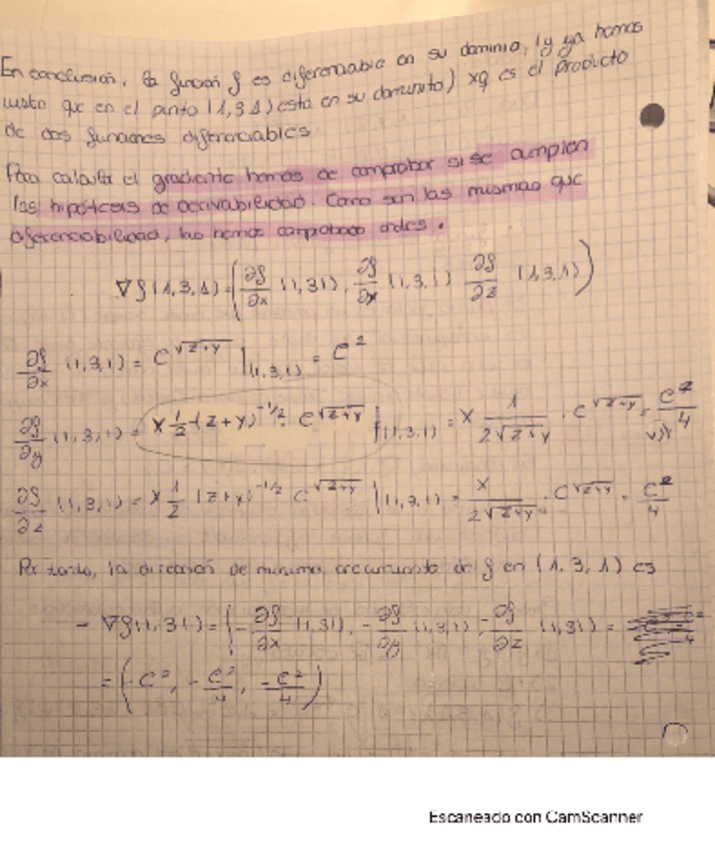 En conclusión, la función f es diferenciable en su dominio, (y ya hemos
visto que en el punto (1,3,1) esta en su dominio) xq es el producto
de dos funciones diferenciables
Para calcular el gradiente hemos de comprobar si se cumplen
las hipótesis de derivabilidad. Como son las mismas que
diferenciabilidad, las hemos comprobado antes.
∇f(1,3,1)=(∂f/∂x (1,3,1), ∂f/∂x (1,3,1) ∂f/∂z (1,3,1))
∂f/∂x (1,3,1) = e^√(z+y) |(1,3,1) = e²
∂f/∂y (1,3,1) = x 1/2 (z+y)^(-1/2) · e^√(z+y) |(1,3,1) = x 1/(2√(z+y)) · e^√(z+y) = e²/4
∂f/∂z (1,3,1) = x 1/2 (z+y)^(-1/2) e^√(z+y) |(1,3,1) = x/(2√(z+y)) · e^√(z+y) = e²/4
Por tanto, la dirección de mínimo crecimiento de f en (1,3,1) es
- ∇f(1,3,1) = (-∂f/∂x (1,3,1), -∂f/∂y (1,3,1), -∂f/∂z (1,3,1) =
= (-e², -e²/4, -e²/4)
Escaneado con CamScanner